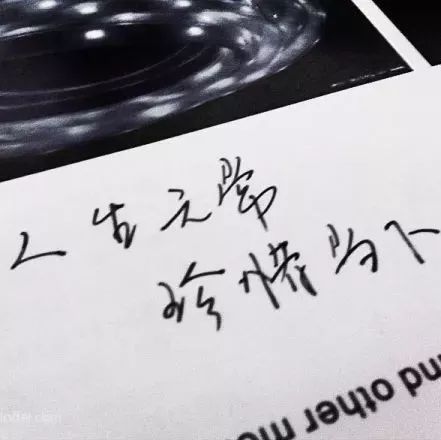 人生无常
珍惜当下
and other mo